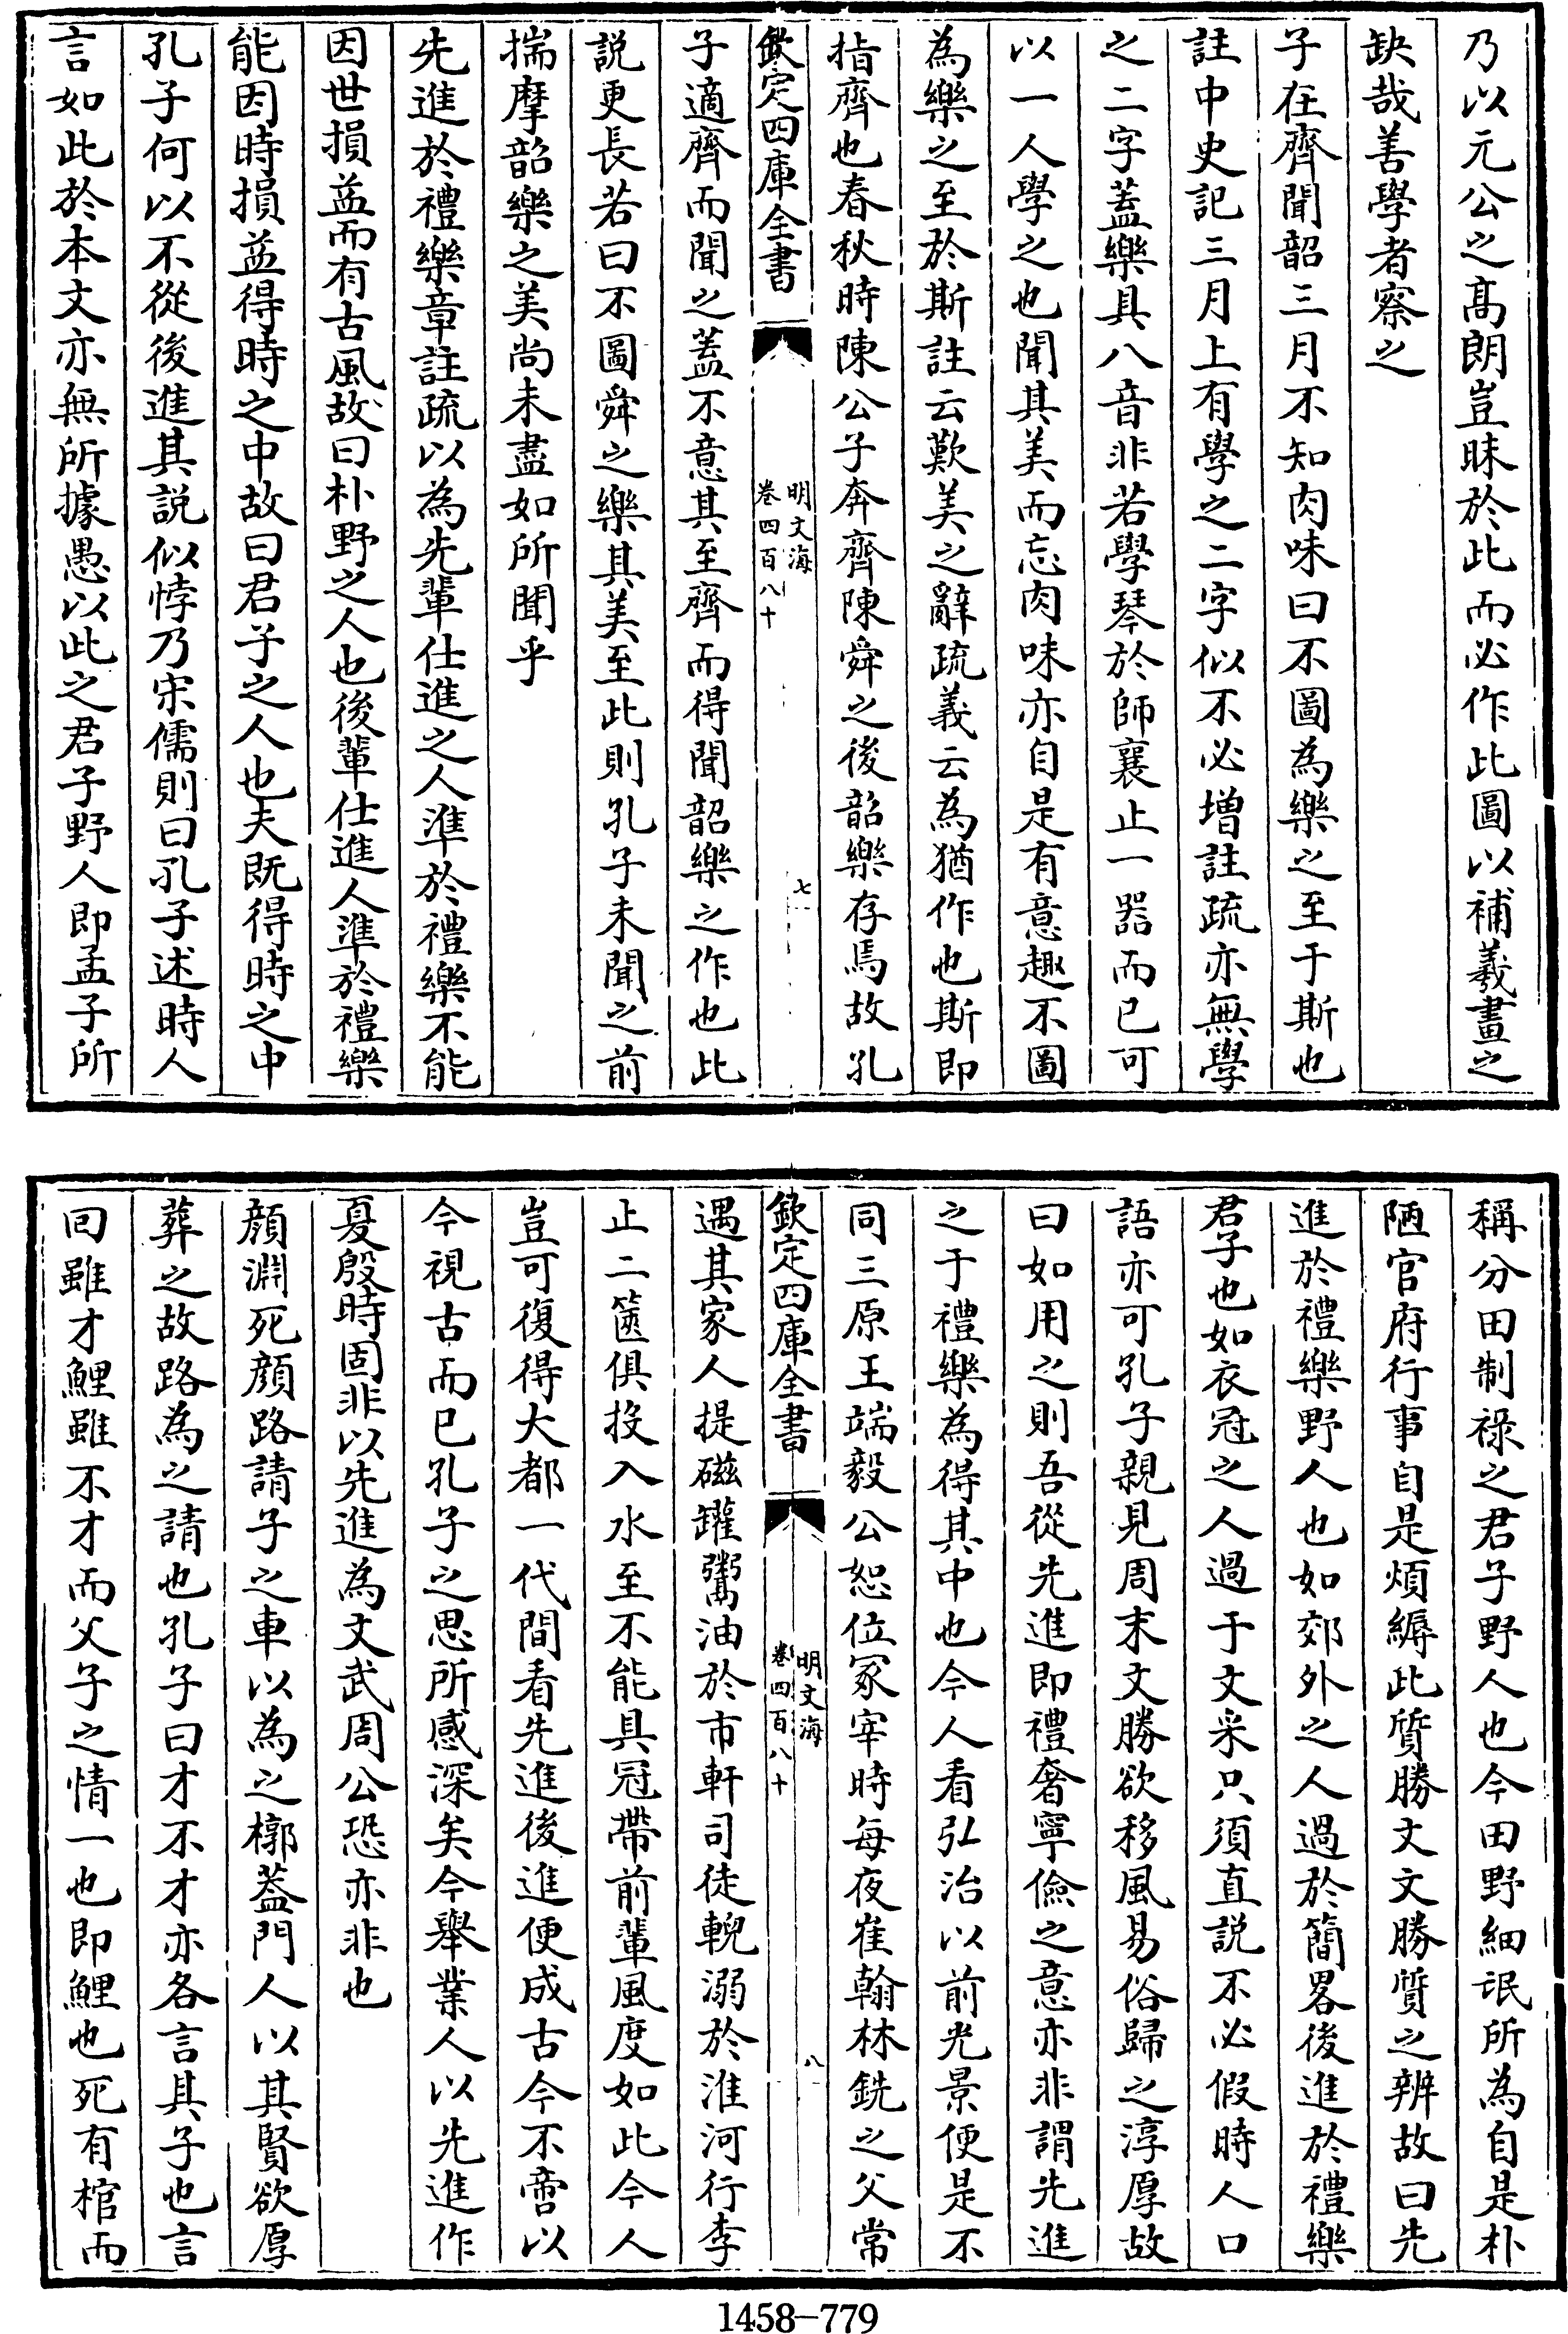 乃以元公之髙朗豈昧於此而必作此圖以補羲畫之
缺哉善學者察之
子在齊聞韶三月不知肉味曰不圖為樂之至于斯也
註中史記三月上有學之二字似不必增註疏亦無學
之二字蓋樂具八音非若學琴於師襄止一器而已可
以一人學之也聞其美而忘肉味亦自是有意趣不圖
為樂之至於斯註云歎美之辭疏義云為猶作也斯即
指齊也春秋時陳公子奔齊陳舜之後韶樂存焉故孔
欽定四庫全書
明文海
卷四百八十
七
子適齊而聞之蓋不意其至齊而得聞韶樂之作也此
説更長若曰不圖舜之樂其美至此則孔子未聞之前
揣摩韶樂之美尚未盡如所聞乎
先進於禮樂章註疏以為先輩仕進之人準於禮樂不能
因世損益而有古風故曰朴野之人也後輩仕進人準於禮樂
能因時損益得時之中故曰君子之人也夫既得時之中
孔子何以不從後進其説似悖乃宋儒則曰孔子述時人
言如此於本文亦無所據愚以此之君子野人即孟子所
稱分田制祿之君子野人也今田野細氓所為自是朴
陋官府行事自是煩縟此質勝文文勝質之辨故曰先
進於禮樂野人也如郊外之人過於簡畧後進於禮樂
君子也如衣冠之人過于文采只須直説不必假時人口
語亦可孔子親見周末文勝欲移風易俗歸之淳厚故
曰如用之則吾從先進即禮奢寧儉之意亦非謂先進
之于禮樂為得其中也今人看弘治以前光景便是不
同三原王端毅公恕位冢宰時每夜崔翰林銑之父常
欽定四庫全書
明文海
卷四百八十
八
遇其家人提磁罐鬻油於市軒司徒輗溺於淮河行李
止二篋俱投入水至不能具冠帶前輩風度如此今人
豈可復得大都一代間看先進後進便成古今不啻以
今視古而已孔子之思所感深矣今舉業人以先進作
夏殷時固非以先進為文武周公恐亦非也
顔淵死顔路請子之車以為之槨蓋門人以其賢欲厚
葬之故路為之請也孔子曰才不才亦各言其子也言
回雖才鯉雖不才而父子之情一也即鯉也死有棺而
1458-779